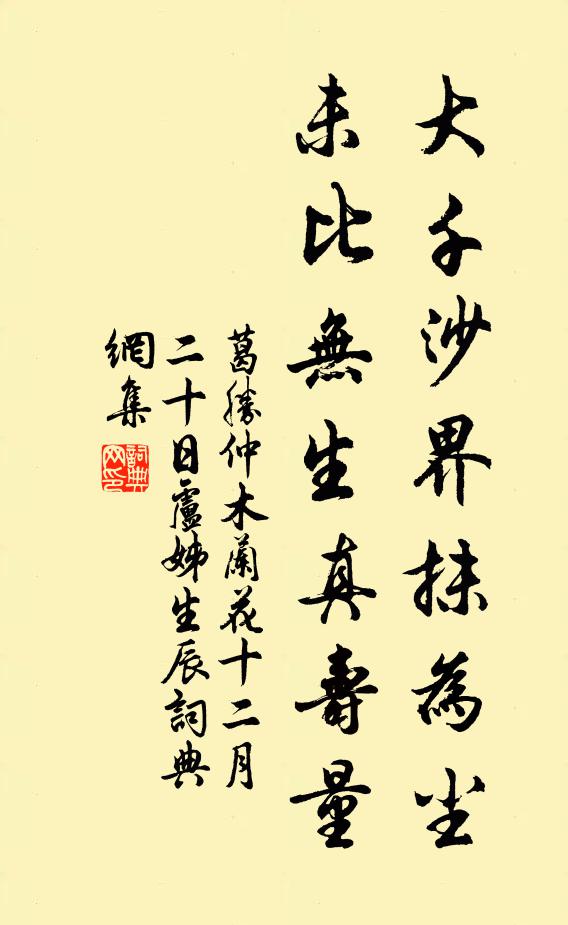 大千沙界抹為尘
未比無生真壽量
葛勝仲木蘭花十二月
二十日盧姊生辰詞典
網集
詞典
网印